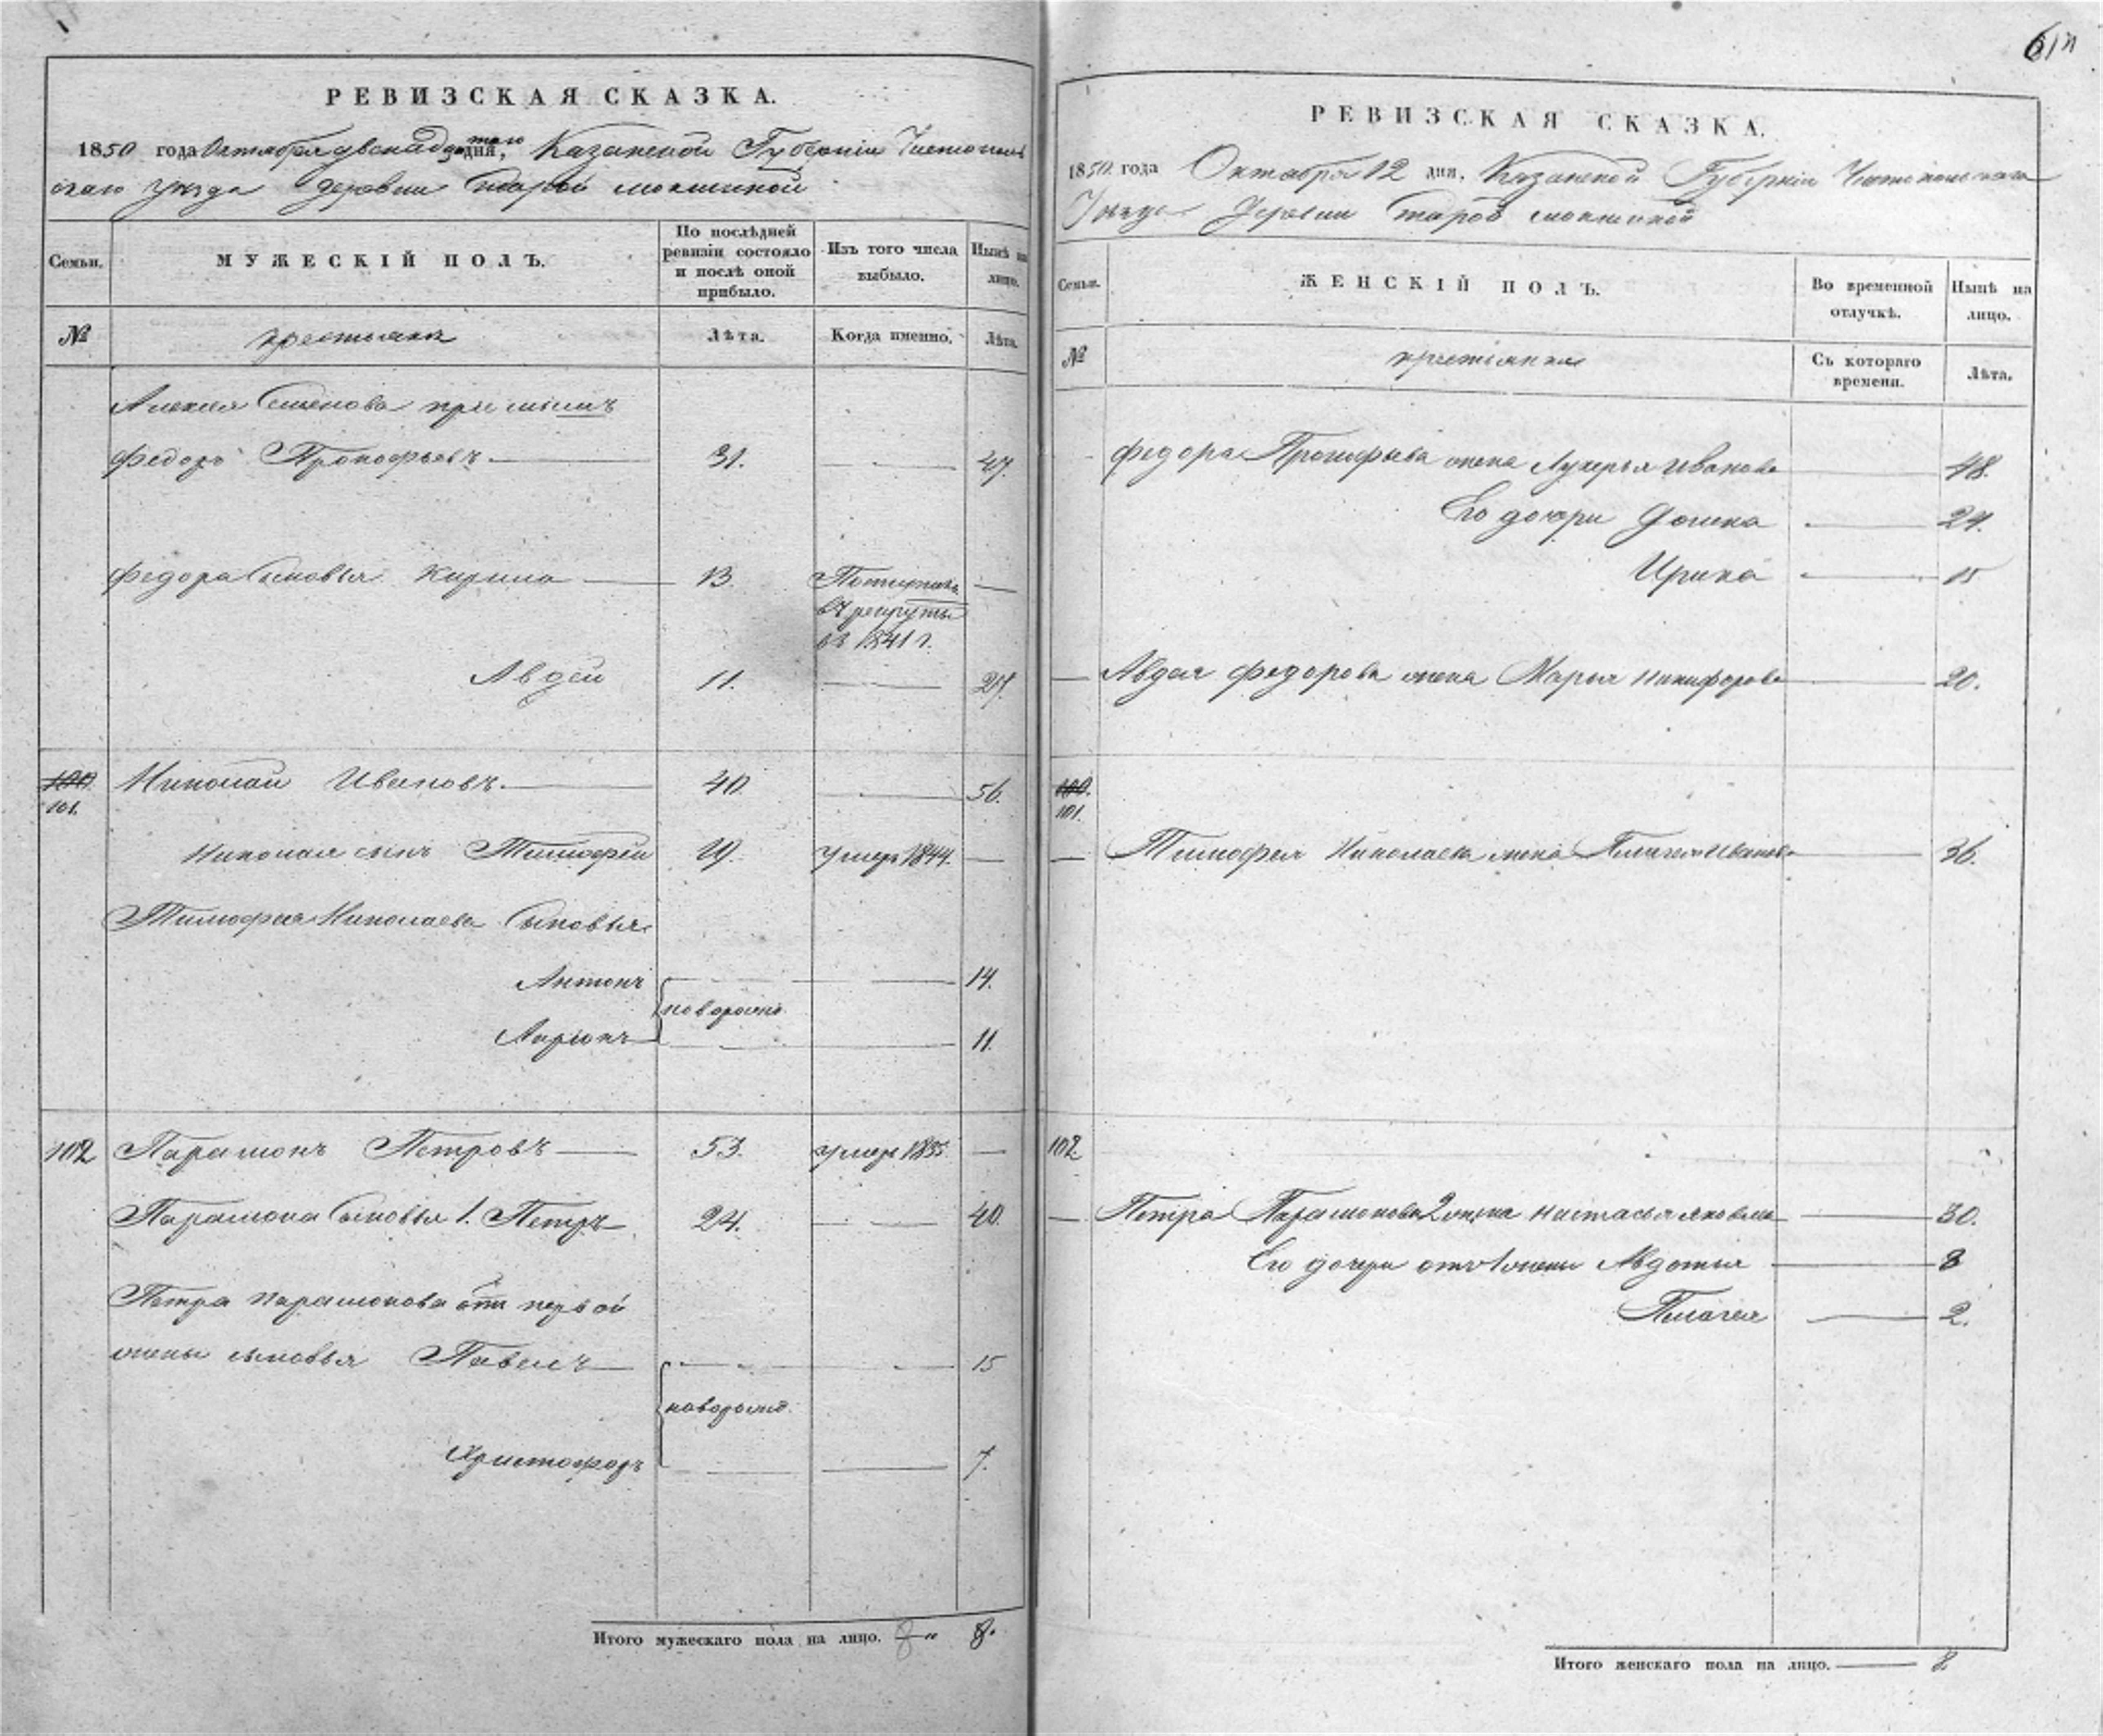 РЕВИЗСКАЯ СКАЗКА.
1850 года Октября двенадцатаго дня, Казанской Губернии Чистополь
скаго уезда деревни Старой мокшиной
Семьи.
МУЖЕСКІЙ ПОЛЪ.
По послѣдней ревизіи состояло и послѣ оной прибыло.
Изъ того числа выбыло.
Нынѣ на лицо.
№
крестьяне
Лѣта.
Когда именно.
Лѣта.
Алексея Семенова
Федоръ Прокофьевъ 31. 47.
Федора Сыновья Кирила 13.
въ рекруты
въ 1841 г.
Авдей 11. 27.
100
101.
Николай Ивановъ. 40 56.
Николая сынъ Тимофей 19. умеръ 1844.
Тимофея Николаева Сыновья
Антонъ 14.
новорожд.
Ларионъ 11.
102 Парамонъ Петровъ 53. умеръ 1835.
Парамона Сыновья 1. Петръ 24. 40.
Петра Парамонова отъ первой
жены сыновья Павелъ 15
новорожд.
Христофоръ 7.
Итого мужескаго пола на лицо. 8.
РЕВИЗСКАЯ СКАЗКА.
1850 года Октября 12 дня, Казанской Губерніи Чистопольскаго
Уезда Деревни Старой мокшиной
Семьи.
ЖЕНСКІЙ ПОЛЪ.
Во временной отлучкѣ.
Нынѣ на лицо.
№
крестьянки
Съ котораго времени.
Лѣта.
Федора Прокофьева жена Лукерья Иванова 48.
Его дочери Домна 24.
Ирина 15
Авдея Федорова жена Марья Никифорова 20.
100.
101.
Тимофея Николаева жена Пелагея Иванова 36.
102
Петра Парамонова 2 жена Настасья Яковлева 30.
Его дочери отъ 1 жены Авдотья 8
Пелагея 2.
Итого женскаго пола на лицо. 8